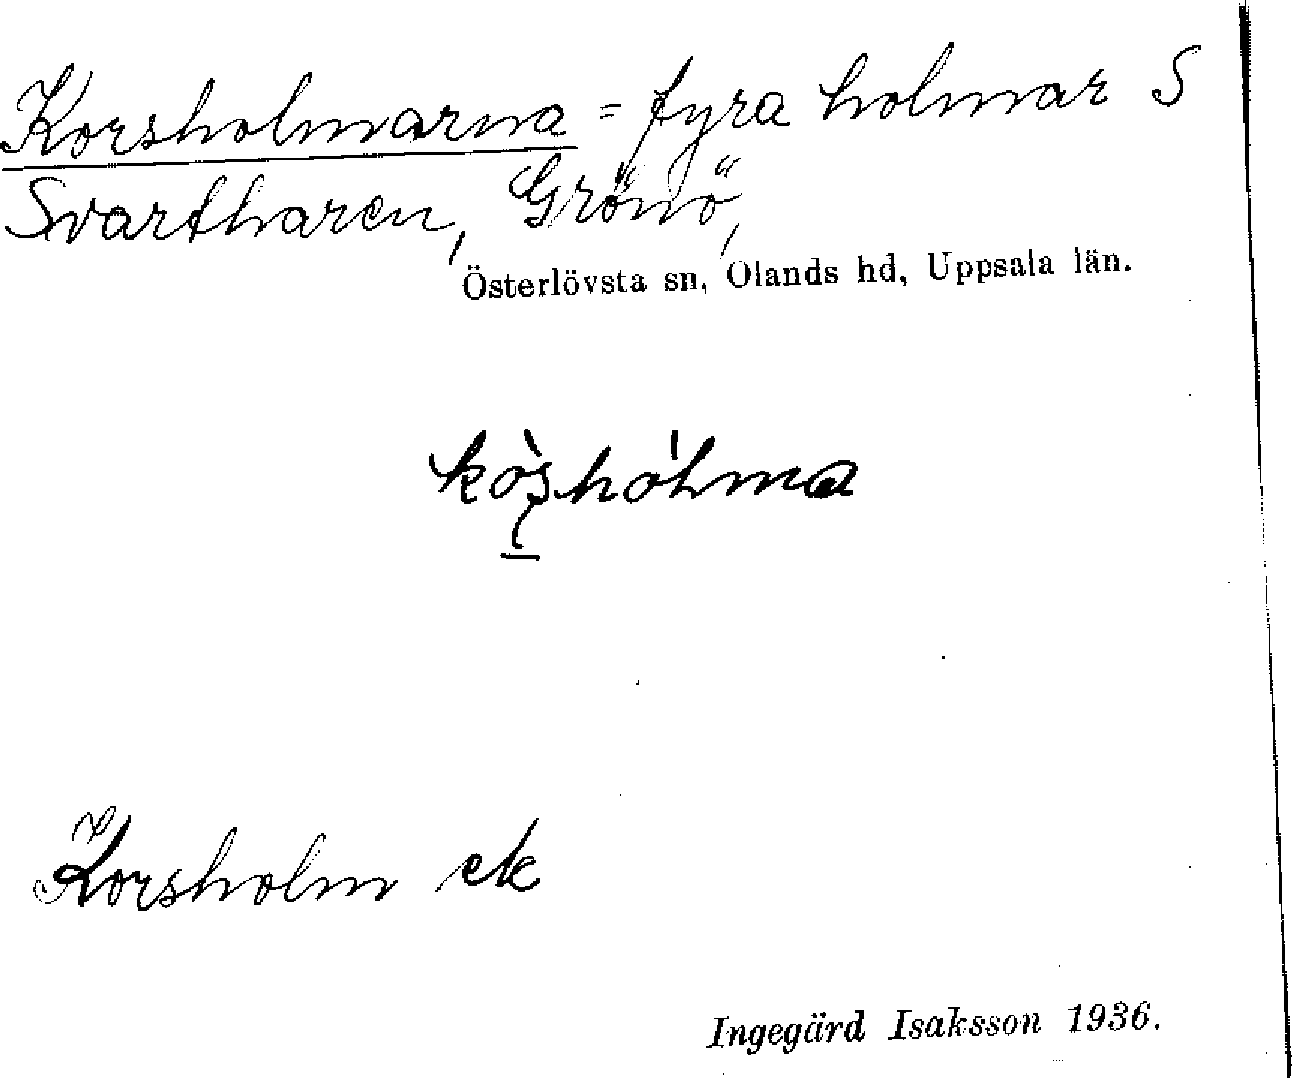 Korsholmarna = fyra holmar S
Svartharen, Grönö,
Österlövsta sn, Olands hd, Uppsala län.
Korsholm ek
Ingegärd Isaksson 1936.